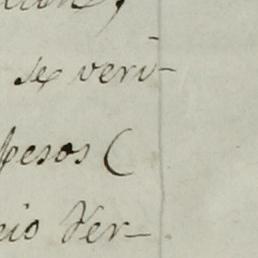 se veri-
pesos (
cio Ver-